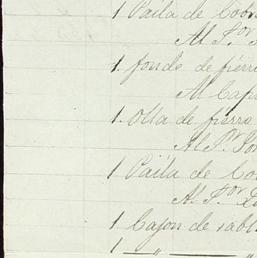 1 Paila de Cobr
Al Sor
1. fondo de fierr
Al Cap
1. Olla de fierro
Al Sor
1 Paila de Co
Al Sor
1 Cajon de tabl
1 — " — "